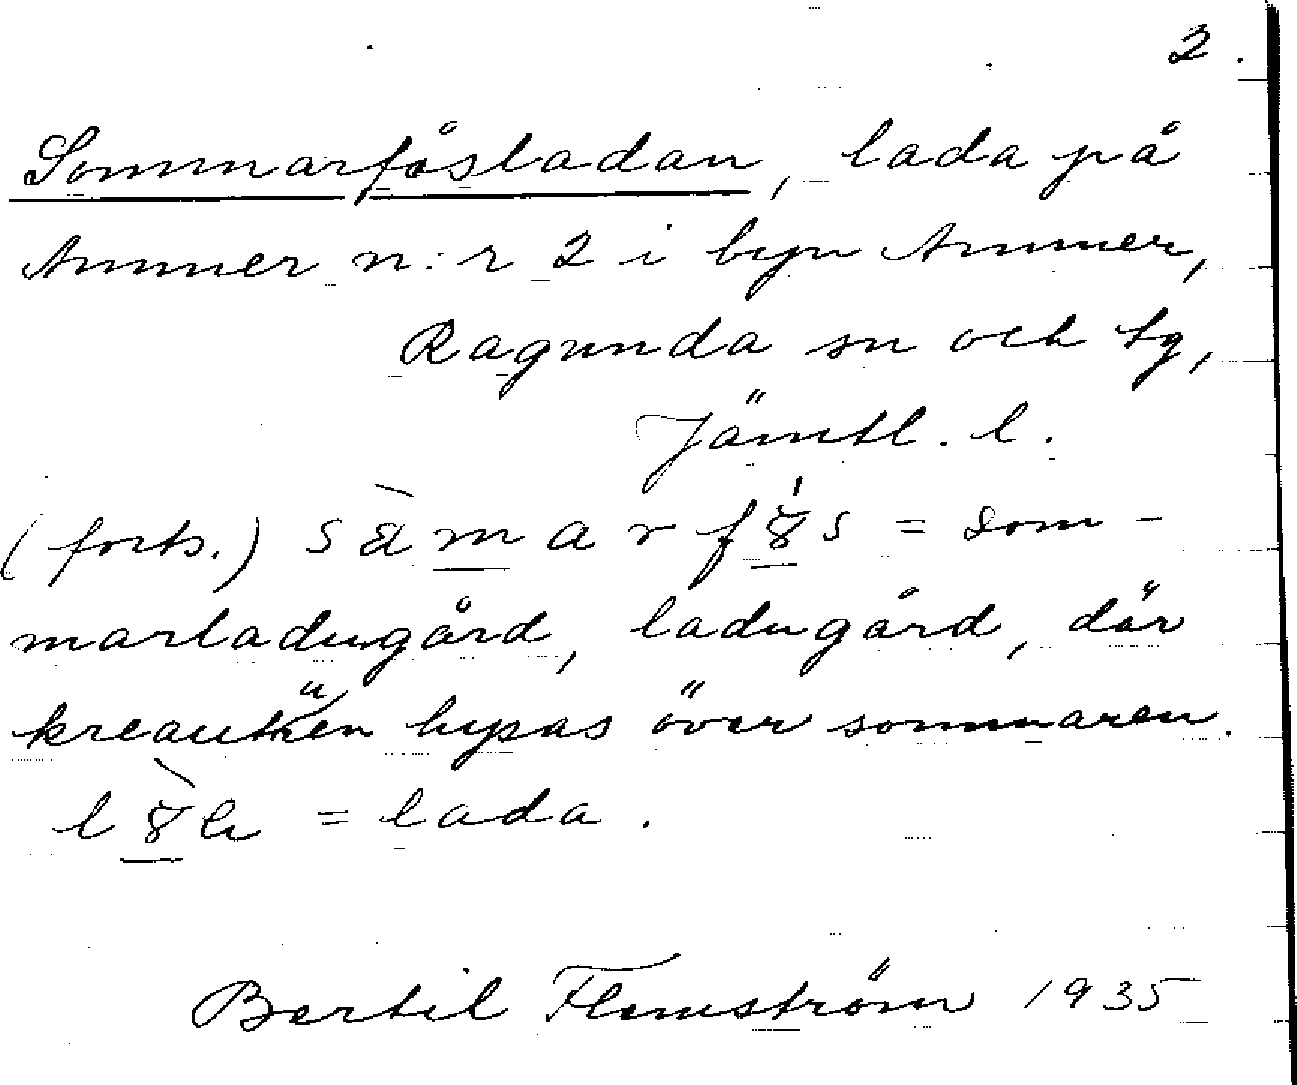 2.
Sommarfåsladan, lada på
Ammer n:r 2 i byn Ammer,
Ragunda sn och tg,
Jämtl. l.
(forts.) = som-
marladugård, ladugård, där
kreauren hysas över sommaren.
= lada.
Bertil Flemström 1935